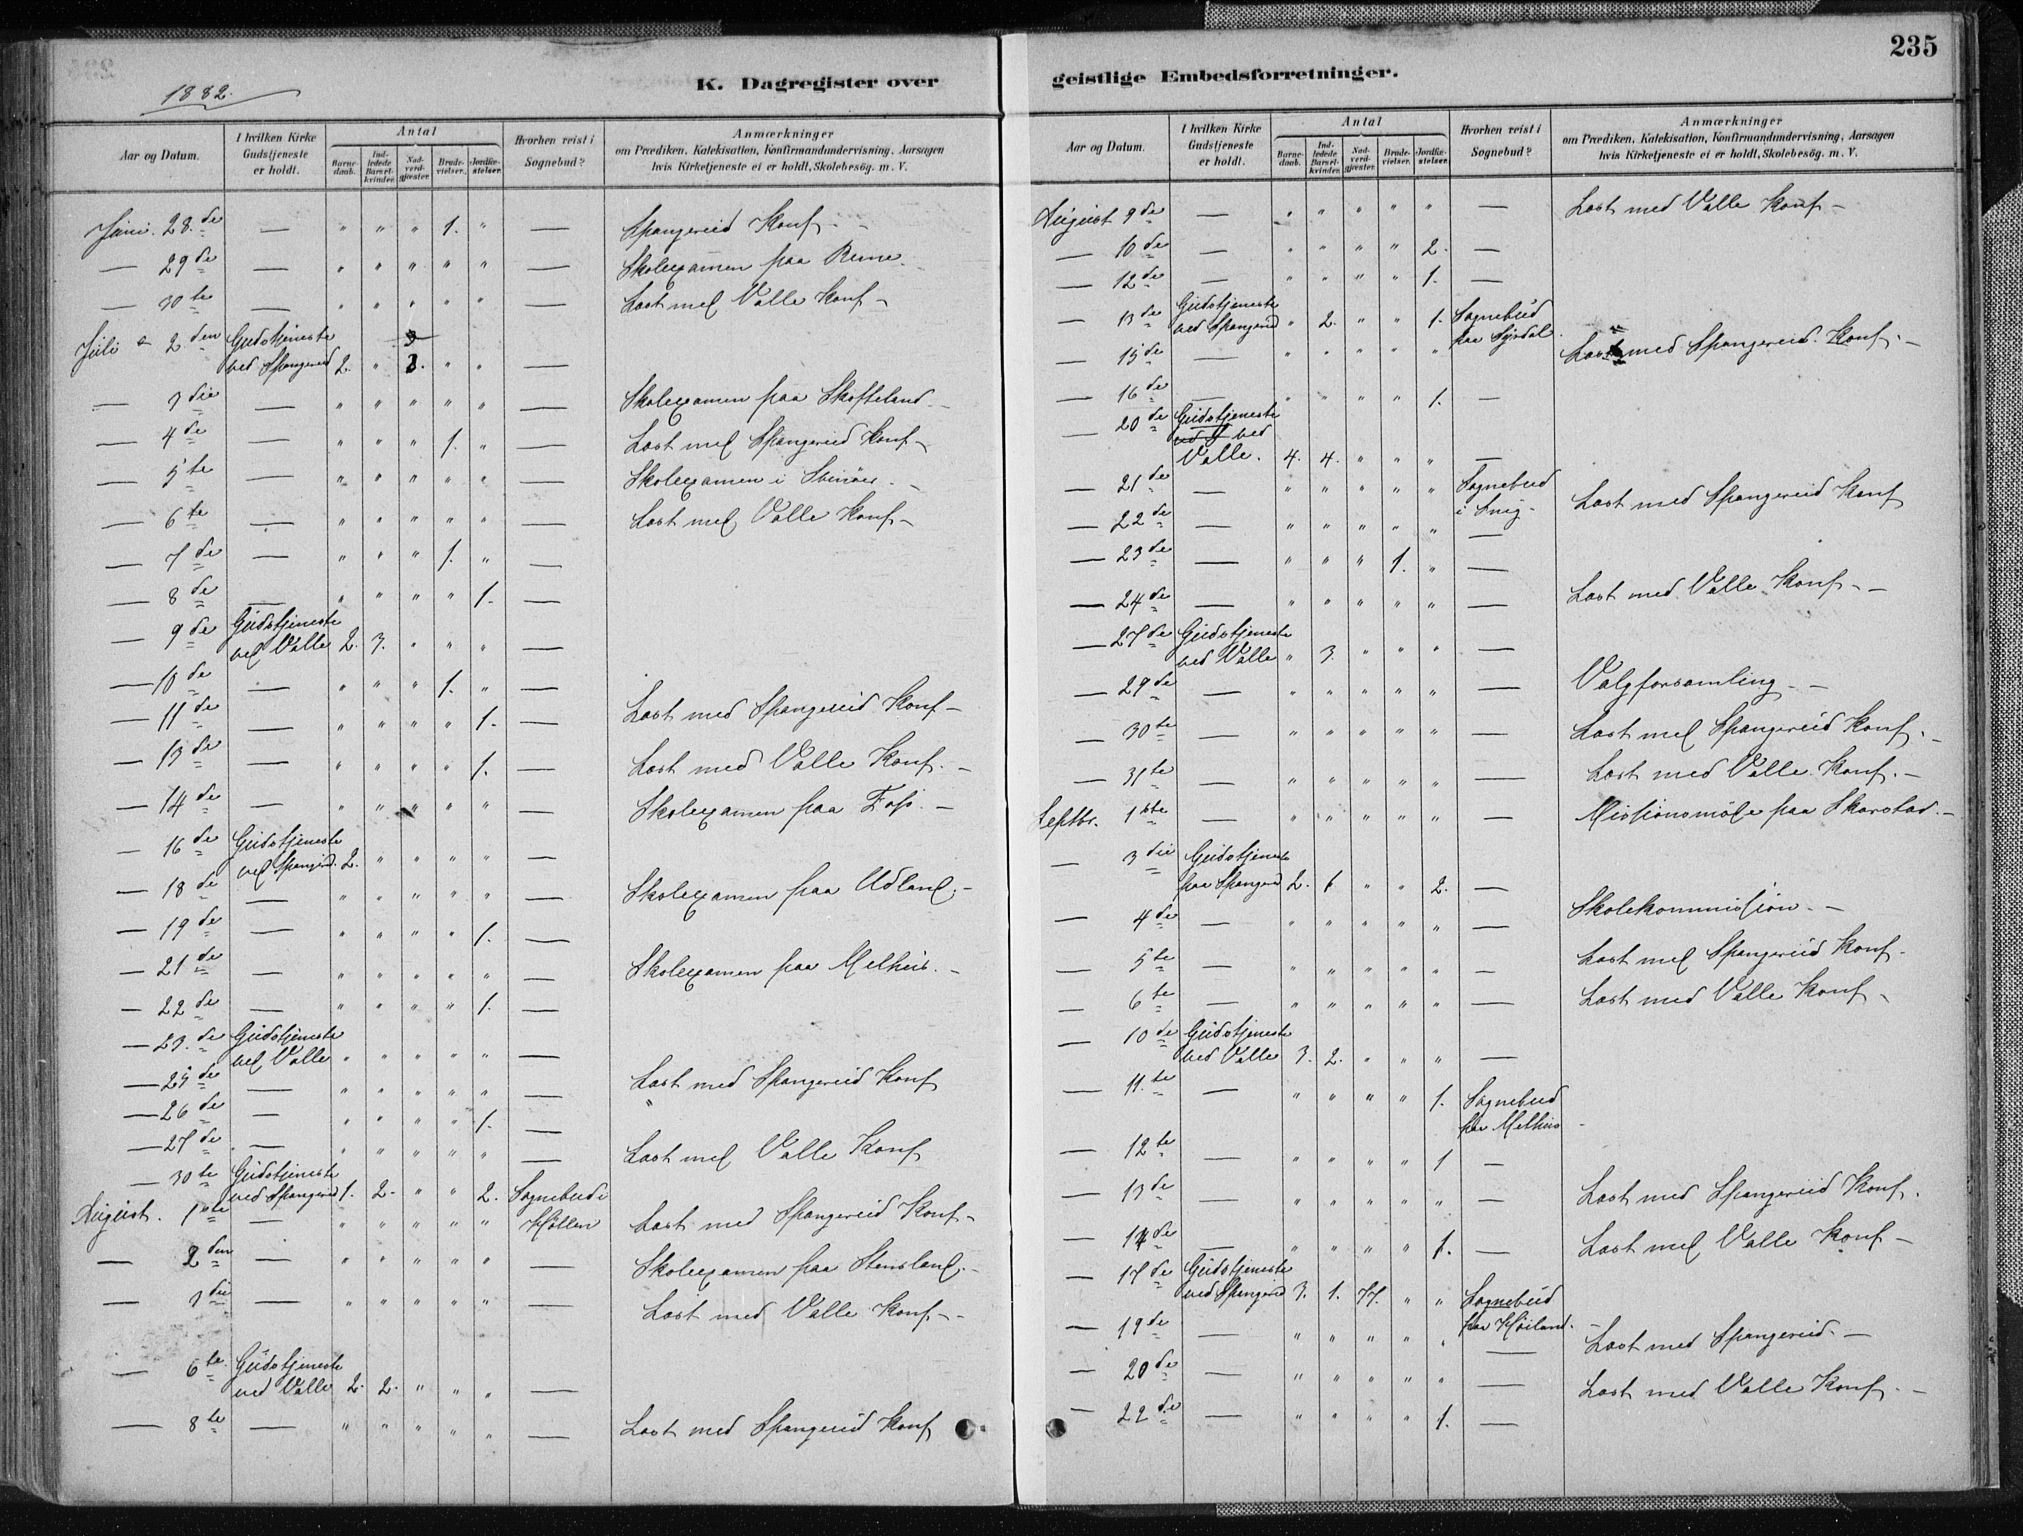 235
1882.
K. Dagregister over geistlige Embedsforretninger.
Aar og Datum.
I hvilken Kirke Gudstjeneste er holdt.
Antal
Barne-daab.
Ind-ledede Barsel-kvinder.
Nad-verd-gjæster.
Brude-vielser.
Jordfæ-stelser.
Hvorhen reist i Sognebud?
Anmærkninger
om Prædiken, Katekisation, Konfirmandundervisning, Aarsagen
hvis Kirketjeneste ei er holdt, Skolebesøg. m. V.
Juni. 28de — " " " 1. " — Spangereid Konf. -
— 29de — " " " " " — Skolexamen paa Rime.
— 30te — " " " " " — Læst med Valle Konf -
Juli 2den Gudstjeneste ved Spangereid 2. " 3. " " —
— 3die — " " " " " — Skolexamen paa Skofteland -
— 4de — " " " 1. " — Læst med Spangereid Konf -
— 5te — " " " " " — Skolexamen i -
— 6te — " " " " " — Læst med Valle Konf -
— 7de — " " " 1. " —
— 8de — " " " " 1. —
— 9de Gudstjeneste ved Valle 2. 3. " " " —
— 10de — " " " 1. " —
— 11de — " " " " 1. — Læst med Spangereid Konf -
— 13de — " " " " 1. — Læst med Valle Konf. -
— 14de — " " " " " — Skolexamen paa Foss. -
— 16de Gudstjeneste ved Spangereid. 2. " " " " —
— 18de — " " " " " — Skolexamen paa Udland. -
— 19de — " " " " 1. —
— 21de — " " " " " — Skolexamen paa Melhus. -
— 22de — " " " " 1. —
— 23.de Gudstjeneste ved Valle " " " " " —
— 25de — " " " " " — Læst med Spangereid Konf
— 26de — " " " " 1. —
— 27de — " " " " " — Læst med Valle Konf
— 30te Gudstjeneste ved Spangereid 1. 2. " " 2. Sognebud i Høllen
August. 1ste — " " " " " Læst med Spangereid Konf -
— 2den — " " " " " — Skolexamen paa Stensland. -
— 3die — " " " " " — Læst med Valle Konf - -
— 6te Gudstjeneste ved Valle 2. 2. " " " —
— 8te — " " " " " — Læst med Spangereid Konf
Aar og Datum.
I hvilken Kirke Gudstjeneste er holdt.
Antal
Barne-daab.
Ind-ledede Barsel-kvinder.
Nad-verd-gjæster.
Brude-vielser.
Jordfæ-stelser.
Hvorhen reist i Sognebud?
Anmærkninger
om Prædiken, Katekisation, Konfirmandundervisning, Aarsagen
hvis Kirketjeneste ei er holdt, Skolebesøg. m. V.
August 9de — " " " " " — Læst med Valle Konf -
— 10de — " " " " 2. —
— 12de — " " " " 1. —
— 13de Gudstjeneste ved Spangereid " 2. " " 1. Sognebud paa
— 15de — " " " " " Læst med Spangereid Konf. -
— 16de — " " " " 1. —
— 20de Gudstjeneste ved Valle. 4. 4. " " " —
— 21de — " " " " " Sognebud i Snig -
— 22de — " " " " " — Læst med Spangereid Konf
— 23de — " " " 1. " —
— 24de — " " " " " — Læst med Valle Konf - -
— 27de Gudstjeneste ved Valle " 3. " " " —
— 29de — " " " " " — Valgforsamling - -
— 30te — " " " " " — Læst med Spangereid Konf. -
— 31te — " " " " " — Læst med Valle Konf. -
Septbr. 1ste — " " " " " — Missionsmøde paa Skarstad. -
— 3die Gudstjeneste paa Spangereid 2. 6 " " 2. —
— 4de — " " " " " — Skolekommission. -
— 5te — " " " " " — Læst med Spangereid Konf.
— 6te — " " " " " — Læst med Valle Konf -
— 10de Gudstjeneste ved Valle 3. 2. " " " —
— 11.te — " " " " 1. Sognebud paa Melhus -
— 12te — " " " " 1 —
— 13de — " " " " " — Læst med Spangereid Konf.
— 14de — " " " " 1. — Læst med Valle Konf -
— 17de Gudstjeneste ved Spangereid 3. 1. 77. " " Sognebud paa Høiland. -
— 19de — " " " " " — Læst med Spangereid. -
— 20de — " " " " " — Læst med Valle Konf. -
— 22de — " " " " 1. —